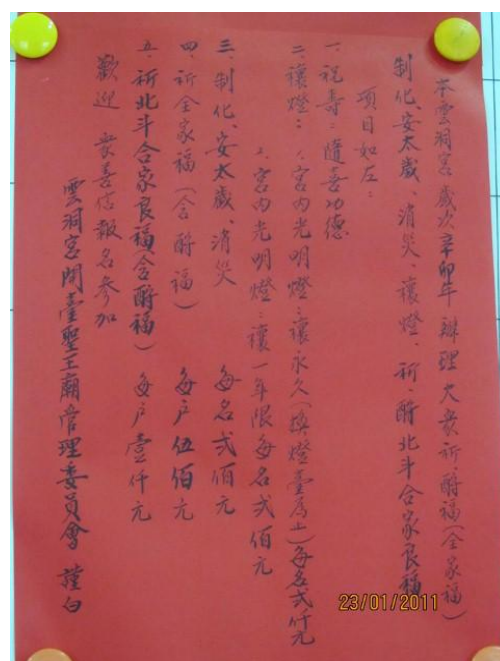 本雲洞宮歲次辛卯年辦理大衆祈、酧福(全家福)
制化、安太歲、消災、禳燈、祈、酧北斗合家良福
項目如左:
一、祝壽:隨喜功德
二、禳燈:1、宮內光明燈:禳永久(換燈臺為止)每名弍仟元
2、宮內光明燈:禳一年限每名弍佰元
三、制化、安太歲、消災 每名弍佰元
四、祈全家福(含酧福) 每戶伍佰元
五、祈北斗合家良福(含酧福) 每戶壹仟元
歡迎 衆善信報名參加
雲洞宮開臺聖王廟管理委員會 謹白
23/01/2011